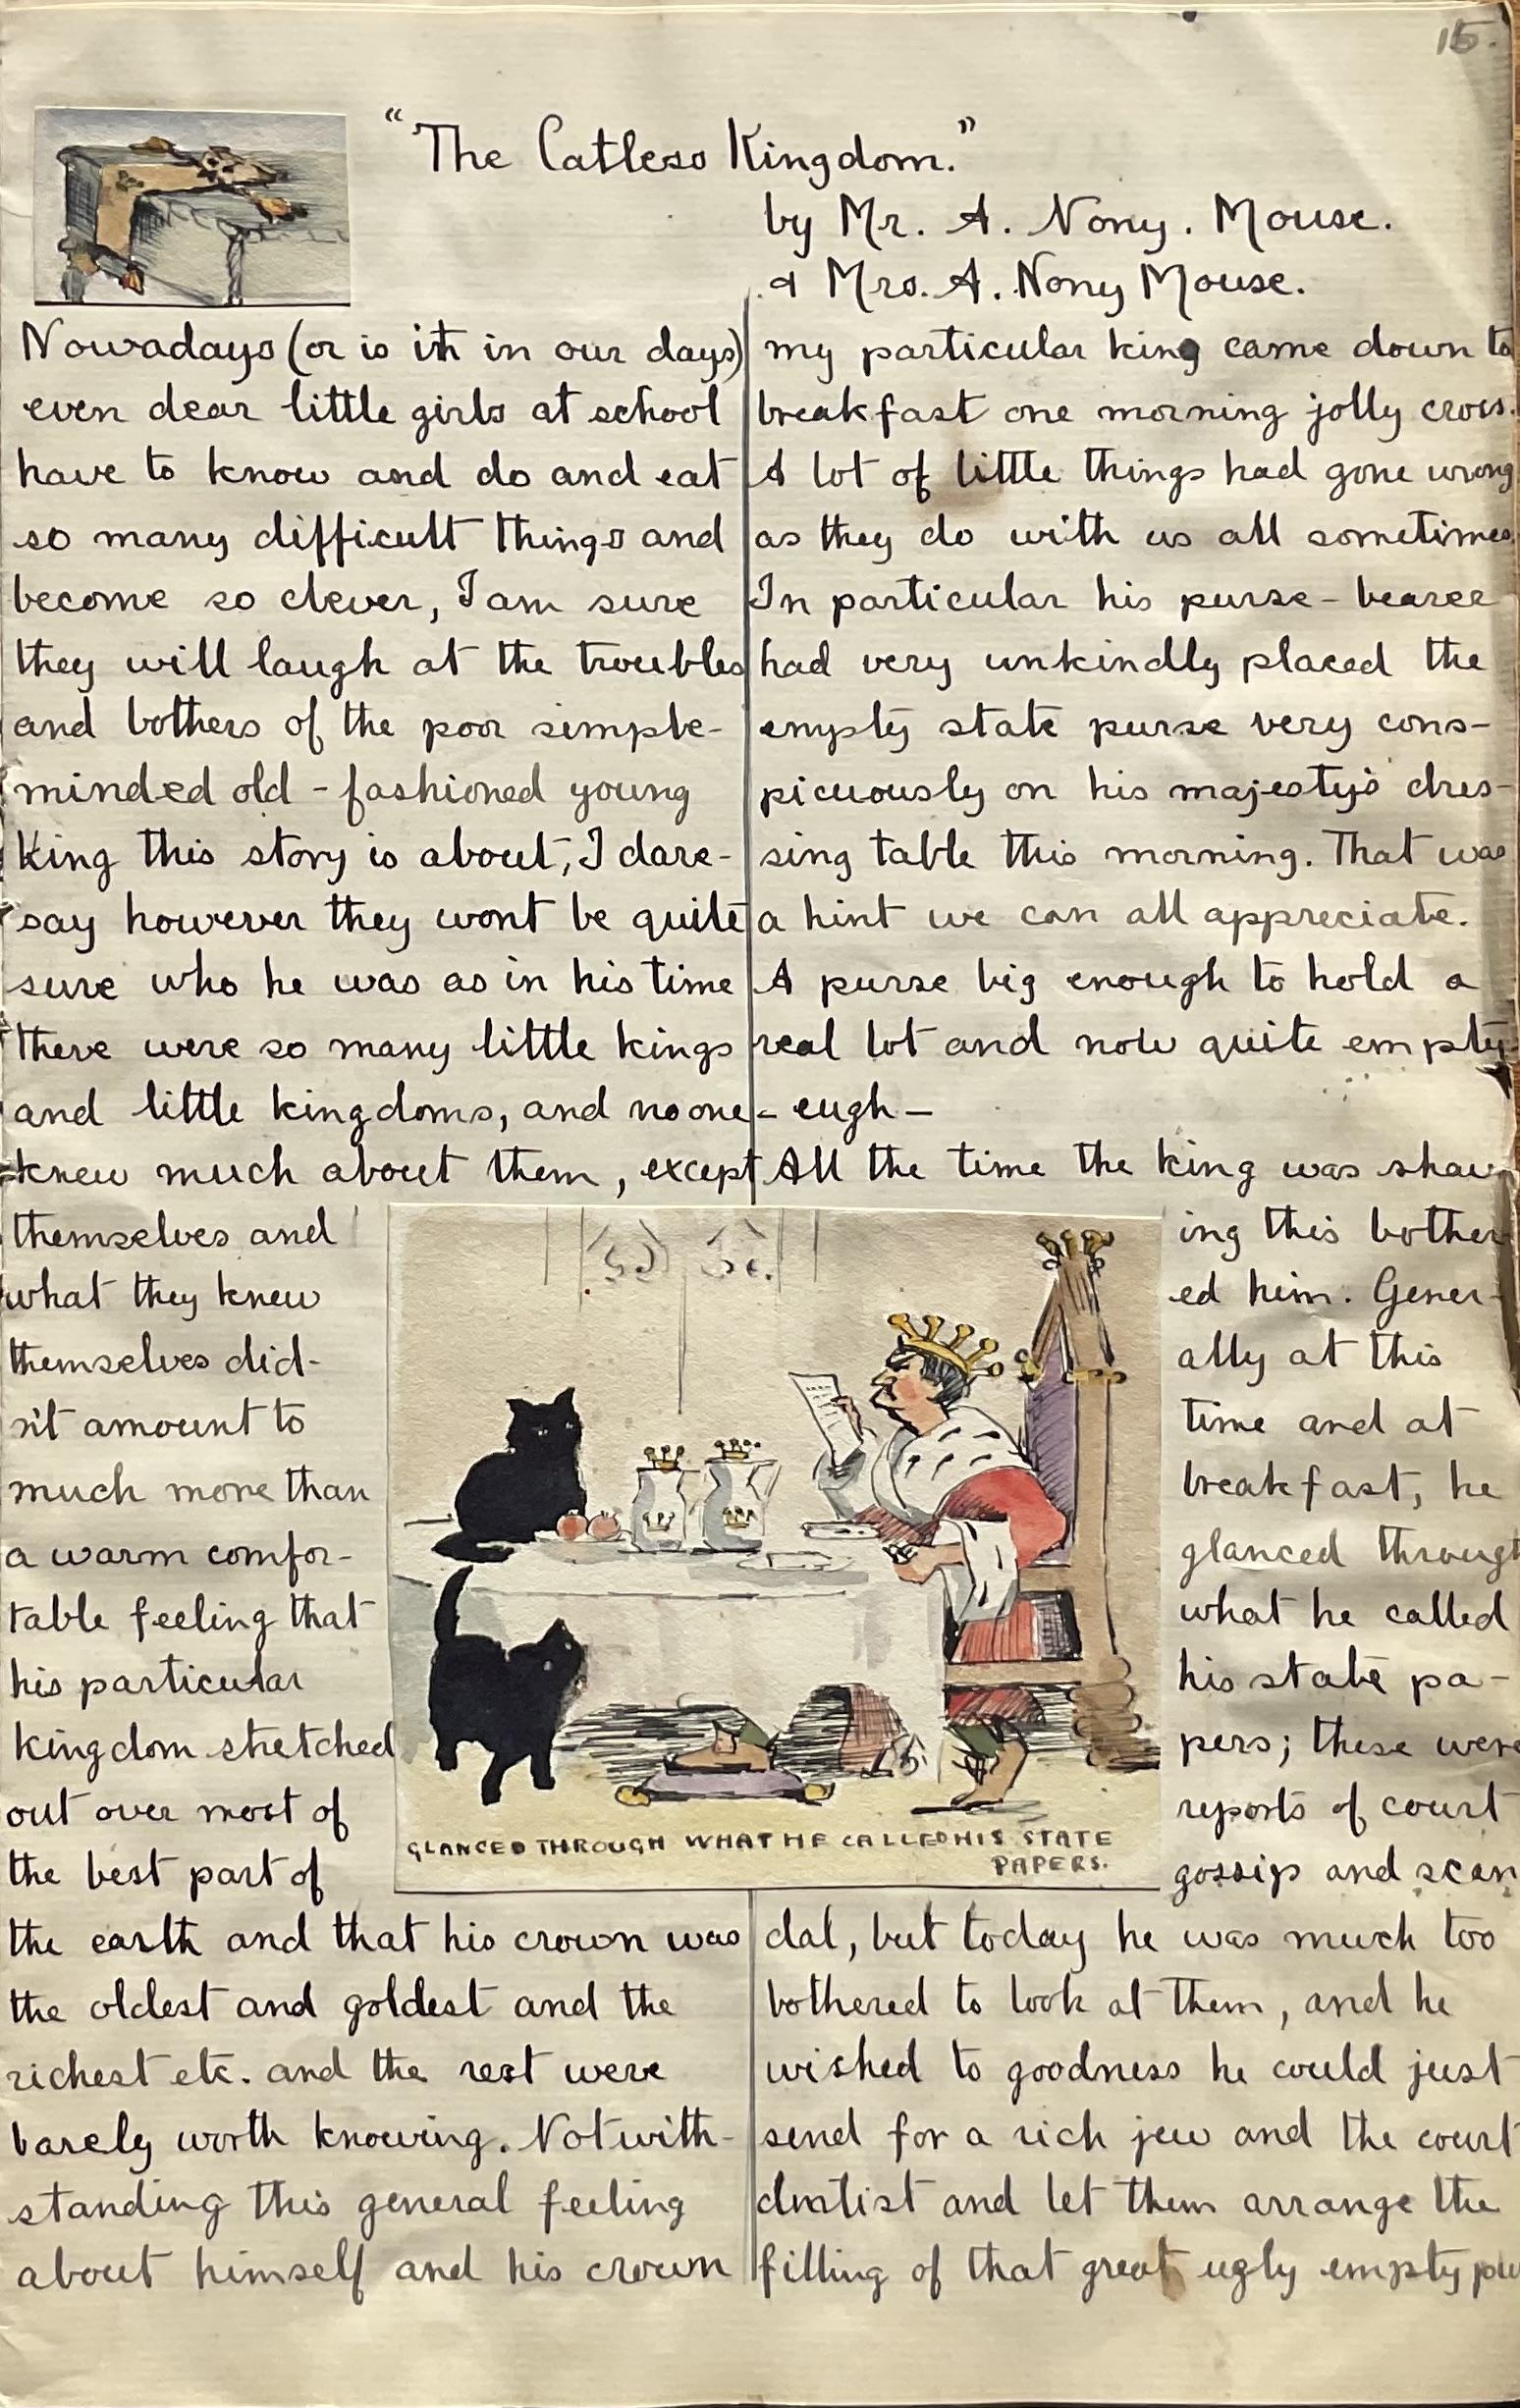 15.
"The Catless Kingdom."
by Mr. A. Nony. Mouse.
& Mrs. A. Nony Mouse.
Nowadays (or is it in our days)
even dear little girls at school
have to know and do and eat
so many difficult things and
become so clever, I am sure
they will laugh at the troubles
and bothers of the poor simple-
minded old-fashioned young
King this story is about, I dare-
say however they wont be quite
sure who he was as in his time
there were so many little kings
and little kingdoms, and no one
knew much about them, except
themselves and
what they knew
themselves did-
n't amount to
much more than
a warm comfor-
table feeling that
his particular
kingdom stretched
out over most of
the best part of
the earth and that his crown was
the oldest and goldest and the
richest etc. and the rest were
barely worth knowing. Notwith-
standing this general feeling
about himself and his crown
my particular king came down to
breakfast one morning jolly cross.
A lot of little things had gone wrong
as they do with us all sometimes
In particular his purse-bearer
had very unkindly placed the
empty state purse very cons-
picuously on his majesty's dres-
sing table this morning. That was
a hint we can all appreciate.
A purse big enough to hold a
real lot and now quite empty-
- eugh -
All the time the king was shav
ing this bother
ed him. Gener-
ally at this
time and at
breakfast, he
glanced through
what he called
his state pa-
pers; these were
reports of court
gossip and scan
dal, but today he was much too
bothered to look at them, and he
wished to goodness he could just
send for a rich jew and the court
dentist and let them arrange the
filling of that great ugly empty pu
GLANCED THROUGH WHAT HE CALLED HIS STATE
PAPERS.